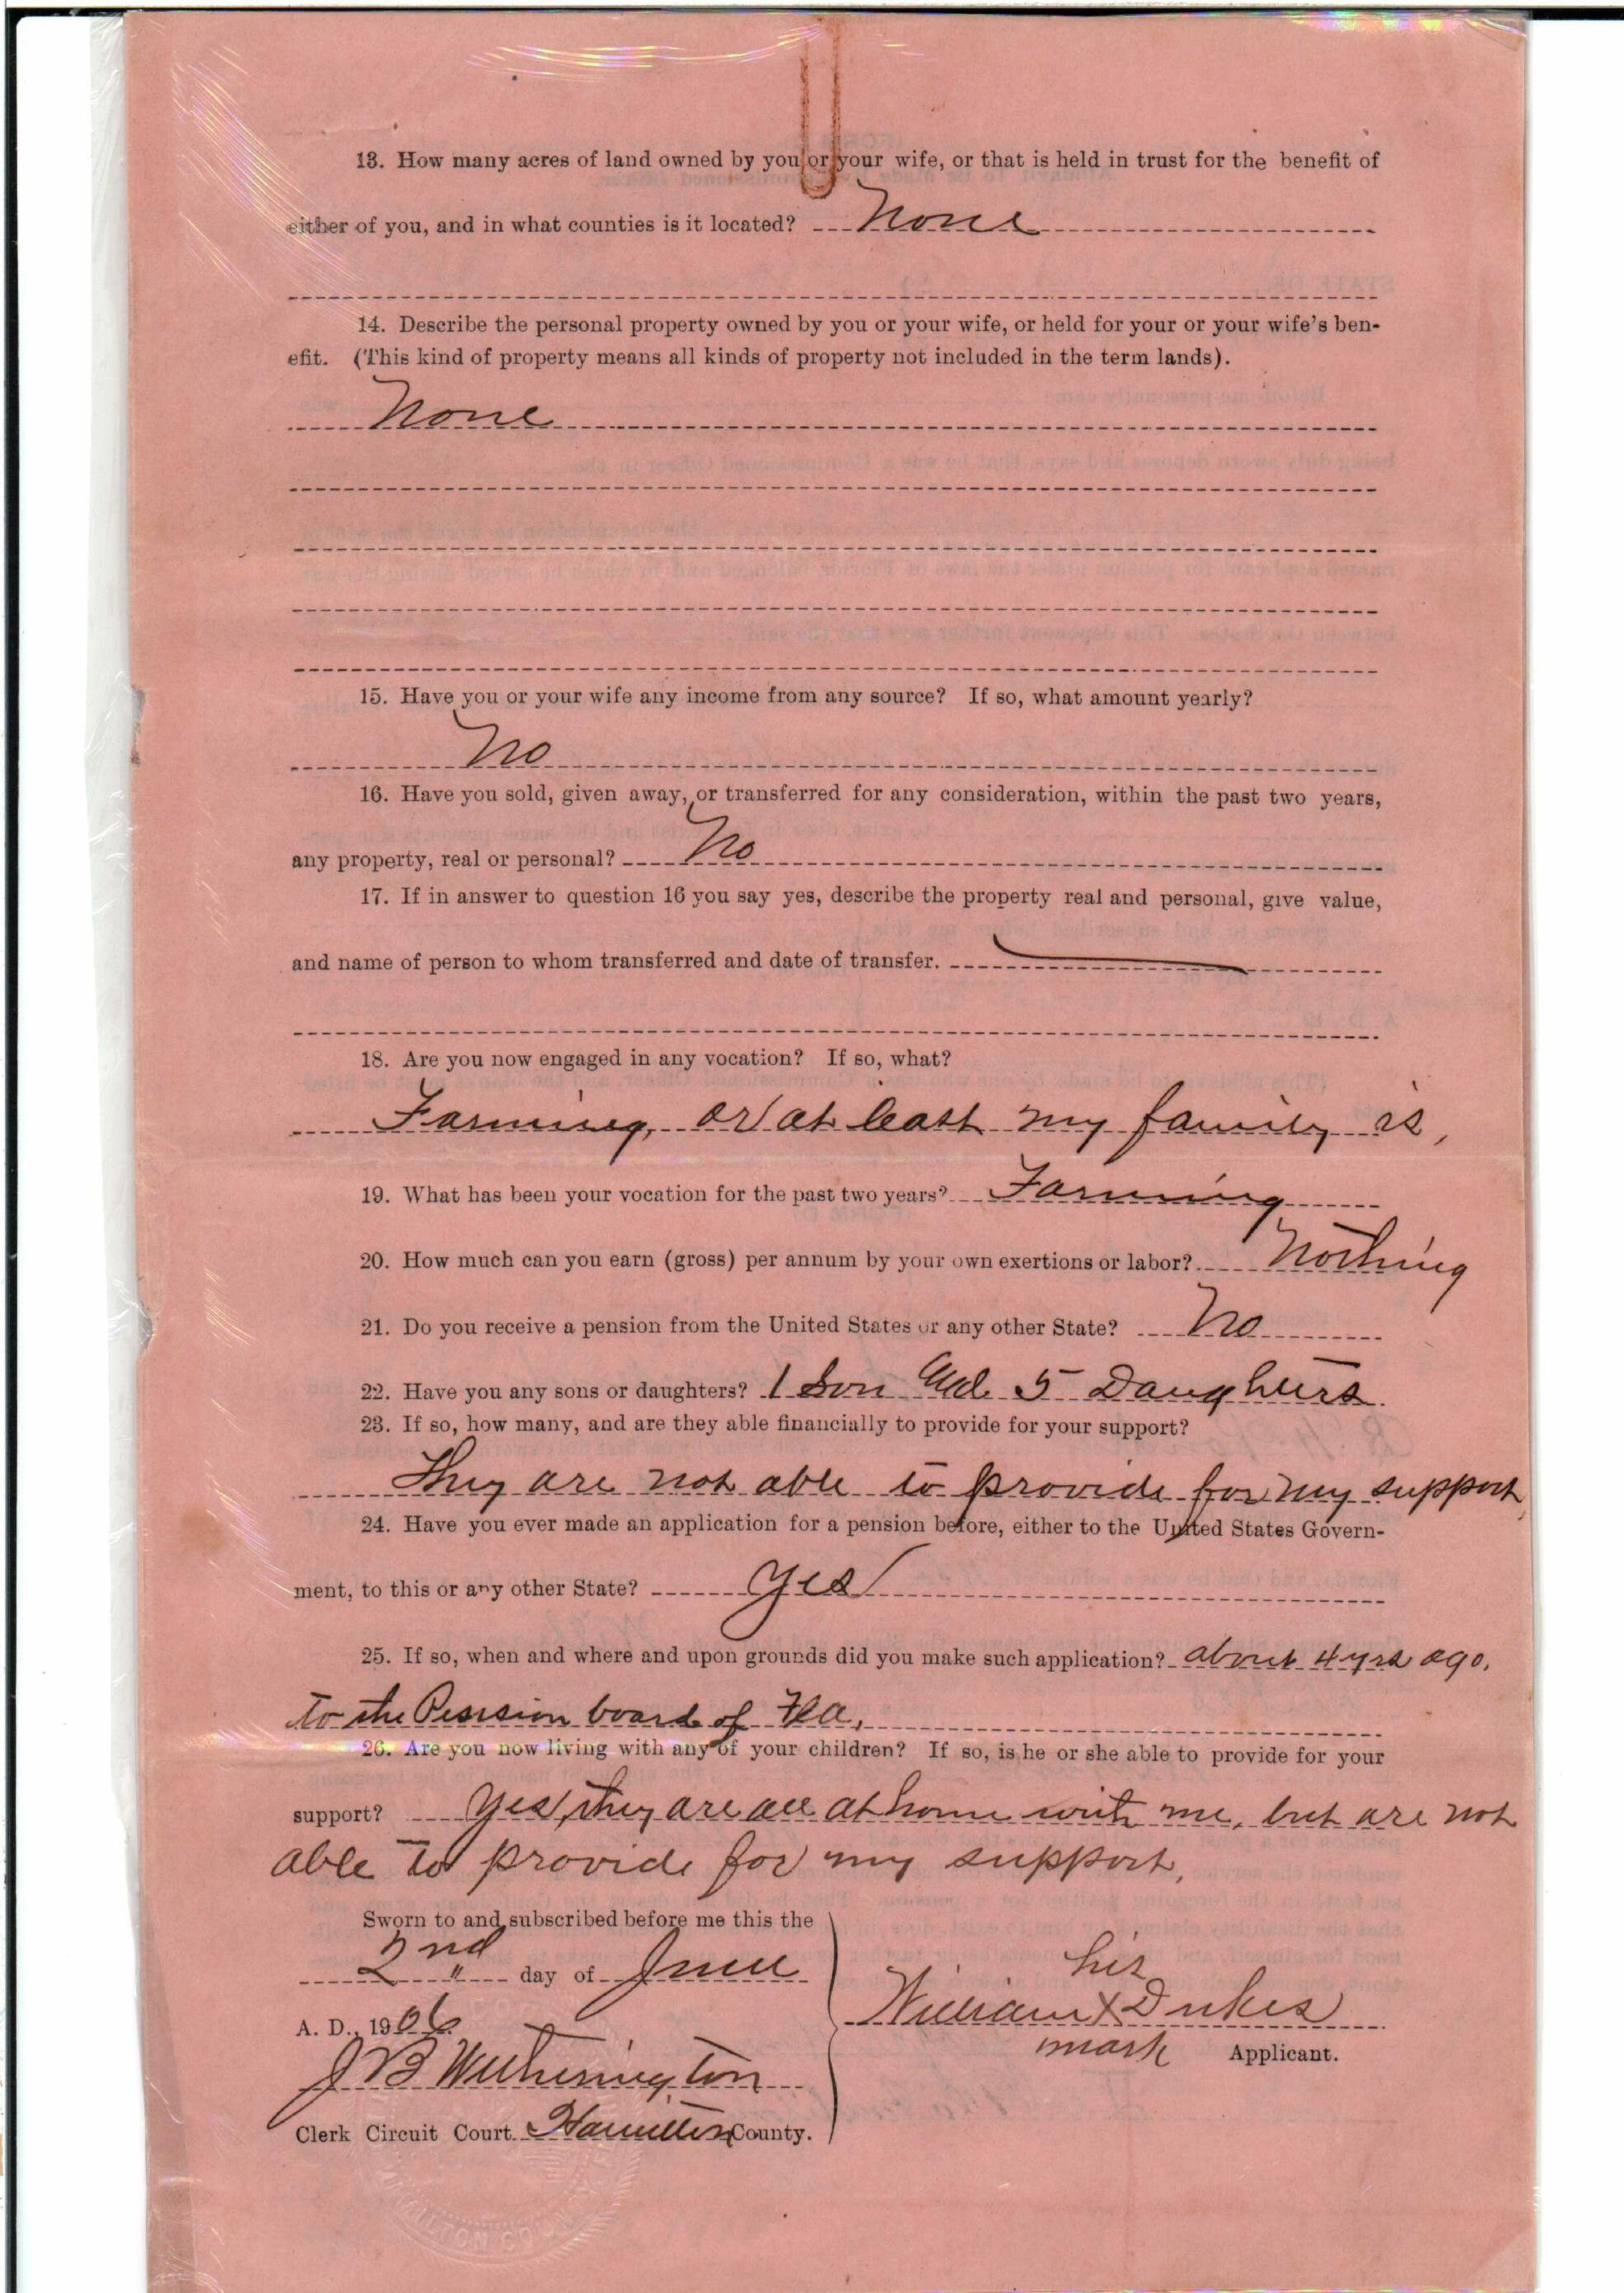 13. How many acres of land owned by you or your wife, or that is held in trust for the benefit of
either of you, and in what counties is it located? None
14. Describe the personal property owned by you or your wife, or held for your or your wife's ben-
efit. (This kind of property means all kinds of property not included in the term lands).
None
15. Have you or your wife any income from any source? If so, what amount yearly?
No
16. Have you sold, given away, or transferred for any consideration, within the past two years,
any property, real or personal? No
17. If in answer to question 16 you say yes, describe the property real and personal, give value,
and name of person to whom transferred and date of transfer.
18. Are you now engaged in any vocation? If so, what?
Farming, or at least my family is,
19. What has been your vocation for the past two years? Farming
20. How much can you earn (gross) per annum by your own exertions or labor? Nothing
21. Do you receive a pension from the United States or any other State? No
22. Have you any sons or daughters? 1 Son and 5 Daughters
23. If so, how many, and are they able financially to provide for your support?
They are not able to provide for my support,
24. Have you ever made an application for a pension before, either to the United States Govern-
ment, to this or any other State? Yes
25. If so, when and where and upon grounds did you make such application? about 4 yrs ago.
to the Pension board of Fla,
26. Are you now living with any of your children? If so, is he or she able to provide for your
support? Yes, they are all at home with me, but are not
able to provide for my support,
Sworn to and subscribed before me this the
2nd " day of June
A. D., 1906.
his
William X Dukes
mark Applicant.
J B Witherington
Clerk Circuit Court Hamilton County.
HAMILTON COUNTY